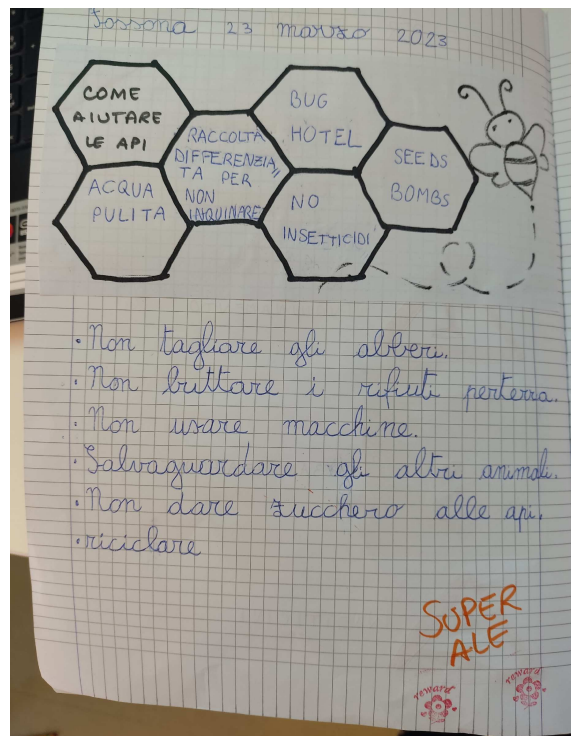 Fossona 23 marzo 2023
COME
AIUTARE
LE API
ACQUA
PULITA
RACCOLTA
DIFFERENZIA
TA PER
NON
INQUINARE
BUG
HOTEL
NO
INSETTICIDI
SEEDS
BOMBS
• Non tagliare gli alberi.
• Non buttare i rifiuti perterra.
• Non usare macchine.
• Salvaguardare gli altri animali.
• Non dare zucchero alle api.
• riciclare
SUPER
ALE
reward
reward